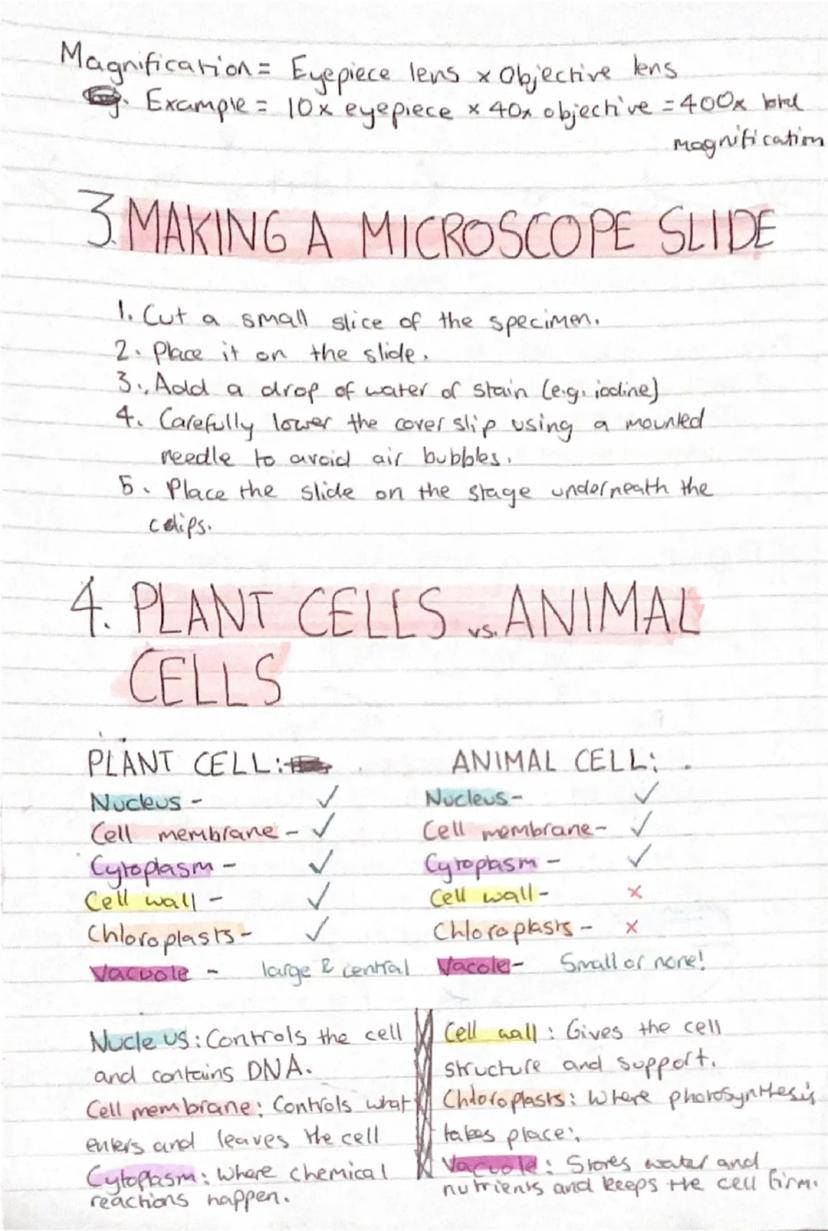 Magnification = Eyepiece lens x Objective lens
Example = 10x eyepiece x 40x objective = 400x total
magnification
3. MAKING A MICROSCOPE SLIDE
1. Cut a small slice of the specimen.
2. Place it on the slide.
3. Add a drop of water of stain (e.g. iodine)
4. Carefully lower the cover slip using a mounted
needle to avoid air bubbles.
5. Place the slide on the stage underneath the
clips.
4. PLANT CELLS vs. ANIMAL
CELLS
PLANT CELL:
Nucleus - ✓
Cell membrane - ✓
Cytoplasm - ✓
Cell wall - ✓
Chloroplasts - ✓
Vacuole - large & central
ANIMAL CELL:
Nucleus - ✓
Cell membrane - ✓
Cytoplasm - ✓
Cell wall - x
Chloroplasts - x
Vacole - Small or none!
Nucleus: Controls the cell
and contains DNA.
Cell membrane: Controls what
enters and leaves the cell
Cytoplasm: Where chemical
reactions happen.
Cell wall: Gives the cell
structure and support.
Chloroplasts: Where photosynthesis
takes place.
Vacuole: Stores water and
nutrients and keeps the cell firm.